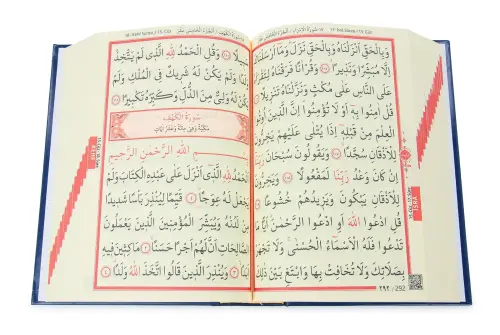 وَبِالْحَقِّ أَنْزَلْنَاهُ وَبِالْحَقِّ نَزَلَ وَمَا أَرْسَلْنَاكَ
إِلَّا مُبَشِّرًا وَنَذِيرًا وَقُرْآنًا فَرَقْنَاهُ لِتَقْرَأَهُ
عَلَى النَّاسِ عَلَى مُكْثٍ وَنَزَّلْنَاهُ تَنْزِيلًا
قُلْ آمِنُوا بِهِ أَوْ لَا تُؤْمِنُوا إِنَّ الَّذِينَ أُوتُوا
الْعِلْمَ مِنْ قَبْلِهِ إِذَا يُتْلَى عَلَيْهِمْ يَخِرُّونَ
لِلْأَذْقَانِ سُجَّدًا وَيَقُولُونَ سُبْحَانَ رَبِّنَا
إِنْ كَانَ وَعْدُ رَبِّنَا لَمَفْعُولًا وَيَخِرُّونَ
لِلْأَذْقَانِ يَبْكُونَ وَيَزِيدُهُمْ خُشُوعًا
قُلِ ادْعُوا اللّٰهَ أَوِ ادْعُوا الرَّحْمٰنَ أَيًّا مَا
تَدْعُوا فَلَهُ الْأَسْمَاءُ الْحُسْنَى وَلَا تَجْهَرْ
بِصَلَاتِكَ وَلَا تُخَافِتْ بِهَا وَابْتَغِ بَيْنَ ذٰلِكَ
٢٩٢ / 292
سَبِيلًا وَقُلِ الْحَمْدُ لِلّٰهِ الَّذِي لَمْ يَتَّخِذْ
وَلَدًا وَلَمْ يَكُنْ لَهُ شَرِيكٌ فِي الْمُلْكِ وَلَمْ
يَكُنْ لَهُ وَلِيٌّ مِنَ الذُّلِّ وَكَبِّرْهُ تَكْبِيرًا
سُورَةُ الْكَهْفِ
مَكِّيَّةٌ وَهِيَ مِائَةٌ وَعَشْرُ آيَاتٍ
بِسْمِ اللّٰهِ الرَّحْمٰنِ الرَّحِيمِ
الْحَمْدُ لِلّٰهِ الَّذِي أَنْزَلَ عَلَى عَبْدِهِ الْكِتَابَ وَلَمْ
يَجْعَلْ لَهُ عِوَجًا قَيِّمًا لِيُنْذِرَ بَأْسًا شَدِيدًا
مِنْ لَدُنْهُ وَيُبَشِّرَ الْمُؤْمِنِينَ الَّذِينَ يَعْمَلُونَ
الصَّالِحَاتِ أَنَّ لَهُمْ أَجْرًا حَسَنًا مَاكِثِينَ فِيهِ
أَبَدًا وَيُنْذِرَ الَّذِينَ قَالُوا اتَّخَذَ اللّٰهُ وَلَدًا